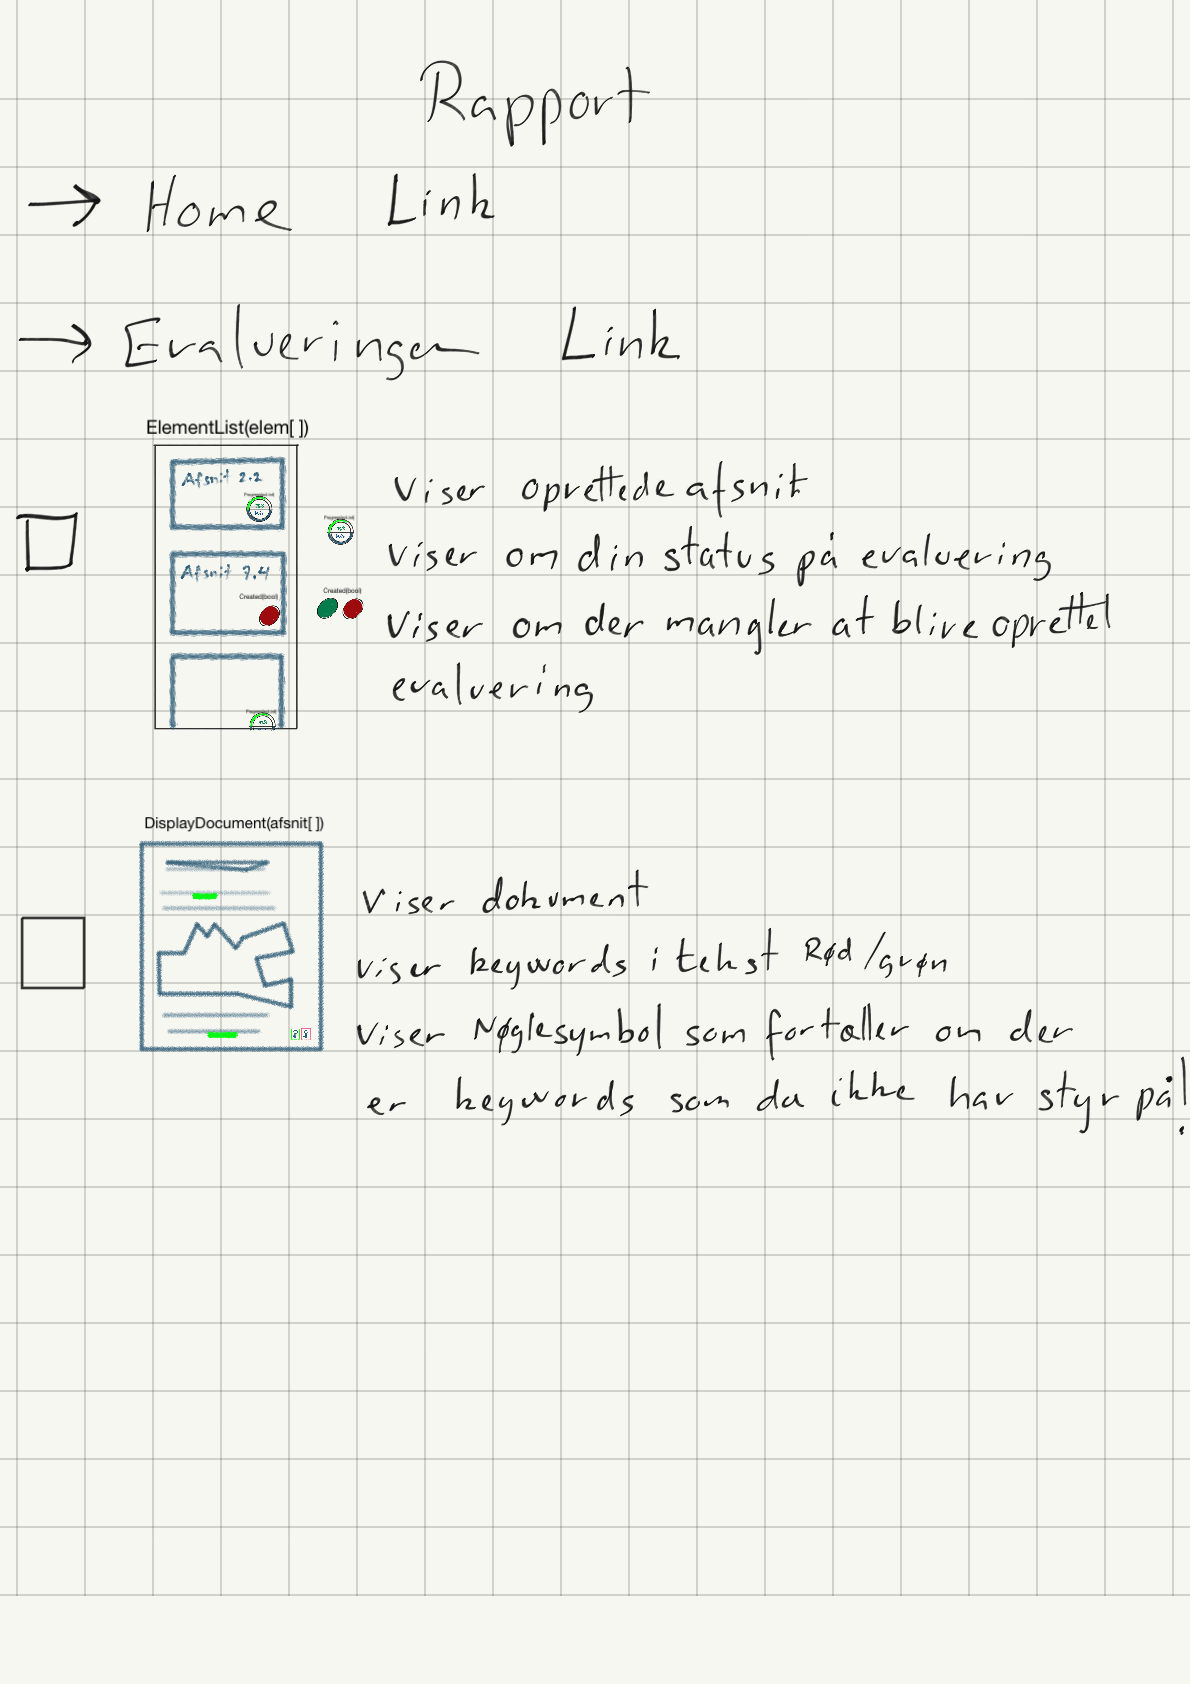 Rapport
→ Home Link
→ Evalueringen Link
ElementList(elem[ ])
Afsnit 2.2
Afsnit 7.4
Created(bool)
Created(bool)
Viser oprettede afsnit
Viser om din status på evaluering
Viser om der mangler at blive oprettet
evaluering
DisplayDocument(afsnit[ ])
Viser dokument
Viser keywords i tekst Rød/grøn
Viser Nøglesymbol som fortæller om der
er keywords som du ikke har styr på!